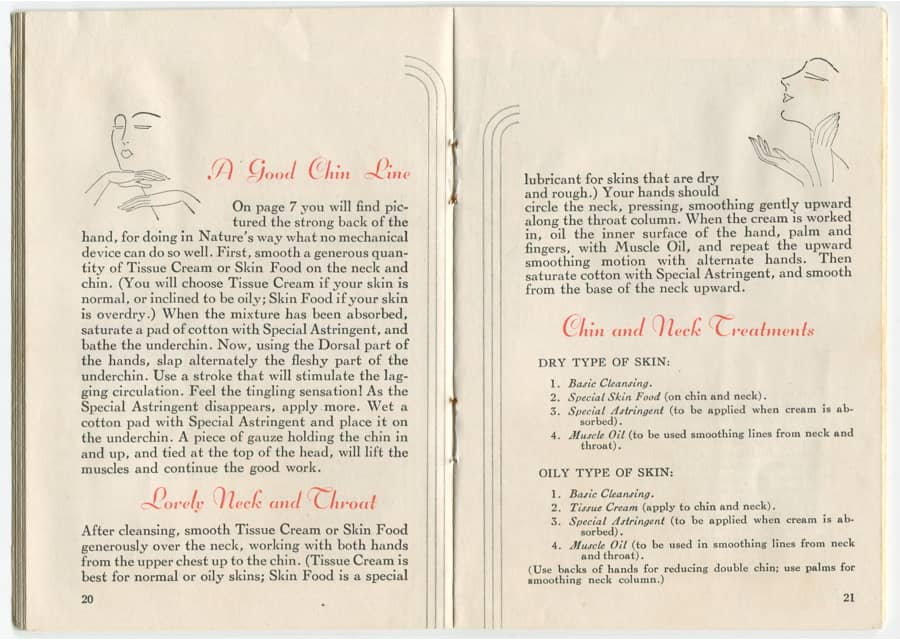 A Good Chin Line
On page 7 you will find pic-
tured the strong back of the
hand, for doing in Nature's way what no mechanical
device can do so well. First, smooth a generous quan-
tity of Tissue Cream or Skin Food on the neck and
chin. (You will choose Tissue Cream if your skin is
normal, or inclined to be oily; Skin Food if your skin
is overdry.) When the mixture has been absorbed,
saturate a pad of cotton with Special Astringent, and
bathe the underchin. Now, using the Dorsal part of
the hands, slap alternately the fleshy part of the
underchin. Use a stroke that will stimulate the lag-
ging circulation. Feel the tingling sensation! As the
Special Astringent disappears, apply more. Wet a
cotton pad with Special Astringent and place it on
the underchin. A piece of gauze holding the chin in
and up, and tied at the top of the head, will lift the
muscles and continue the good work.
Lovely Neck and Throat
After cleansing, smooth Tissue Cream or Skin Food
generously over the neck, working with both hands
from the upper chest up to the chin. (Tissue Cream is
best for normal or oily skins; Skin Food is a special
20
lubricant for skins that are dry
and rough.) Your hands should
circle the neck, pressing, smoothing gently upward
along the throat column. When the cream is worked
in, oil the inner surface of the hand, palm and
fingers, with Muscle Oil, and repeat the upward
smoothing motion with alternate hands. Then
saturate cotton with Special Astringent, and smooth
from the base of the neck upward.
Chin and Neck Treatments
DRY TYPE OF SKIN:
1. Basic Cleansing.
2. Special Skin Food (on chin and neck).
3. Special Astringent (to be applied when cream is ab-
sorbed).
4. Muscle Oil (to be used smoothing lines from neck and
throat).
OILY TYPE OF SKIN:
1. Basic Cleansing.
2. Tissue Cream (apply to chin and neck).
3. Special Astringent (to be applied when cream is ab-
sorbed).
4. Muscle Oil (to be used in smoothing lines from neck
and throat).
(Use backs of hands for reducing double chin; use palms for
smoothing neck column.)
21